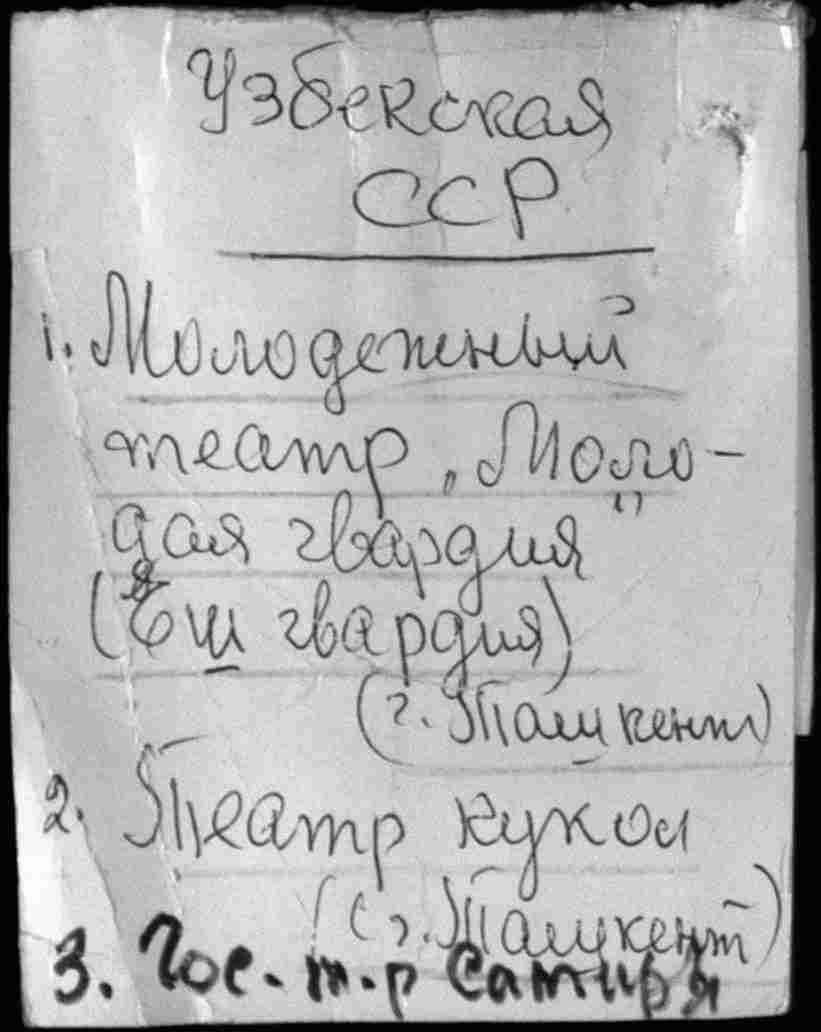 Узбекская
ССР
1. Молодежный
театр „Моло-
дая гвардия"
(Ёш гвардия)
(г. Ташкент)
2. Театр кукол
(г. Ташкент)
3. Гос. т-р Сатиры